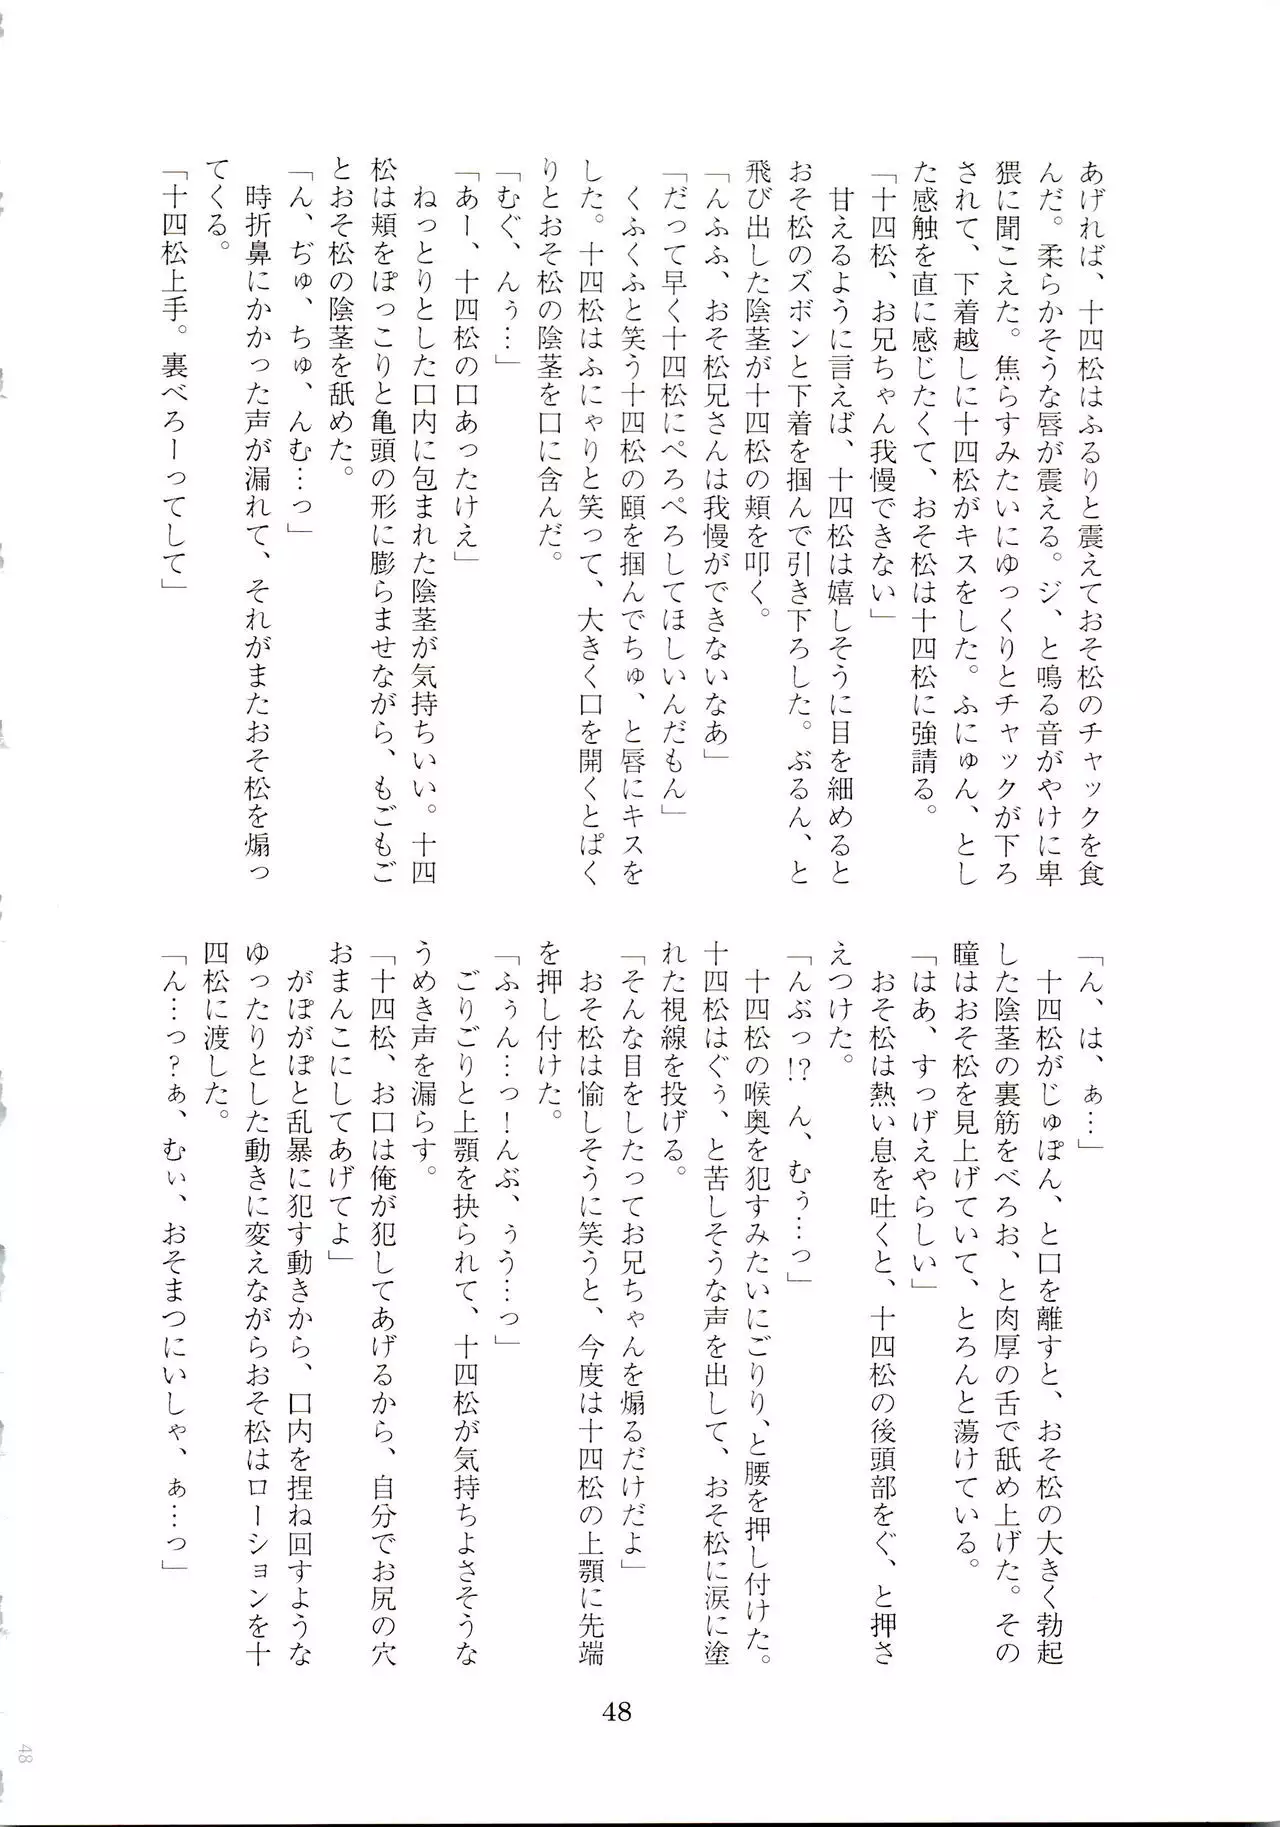 あげれば、十四松はふるりと震えておそ松のチャックを食
んだ。柔らかそうな唇が震える。ジ、と鳴る音がやけに卑
猥に聞こえた。焦らすみたいにゆっくりとチャックが下ろ
されて、下着越しに十四松がキスをした。ふにゅん、とし
た感触を直に感じたくて、おそ松は十四松に強請る。
「十四松、お兄ちゃん我慢できない」
甘えるように言えば、十四松は嬉しそうに目を細めると
おそ松のズボンと下着を掴んで引き下ろした。ぶるん、と
飛び出した陰茎が十四松の頬を叩く。
「んふふ、おそ松兄さんは我慢ができないなあ」
「だって早く十四松にぺろぺろしてほしいんだもん」
くふくふと笑う十四松の頤を掴んでちゅ、と唇にキスを
した。十四松はふにゃりと笑って、大きく口を開くとぱく
りとおそ松の陰茎を口に含んだ。
「むぐ、んぅ…」
「あー、十四松の口あったけえ」
ねっとりとした口内に包まれた陰茎が気持ちいい。十四
松は頬をぽっこりと亀頭の形に膨らませながら、もごもご
とおそ松の陰茎を舐めた。
「ん、ぢゅ、ちゅ、んむ…っ」
時折鼻にかかった声が漏れて、それがまたおそ松を煽っ
てくる。
「十四松上手。裏べろーってして」
「ん、は、ぁ…」
十四松がじゅぽん、と口を離すと、おそ松の大きく勃起
した陰茎の裏筋をべろお、と肉厚の舌で舐め上げた。その
瞳はおそ松を見上げていて、とろんと蕩けている。
「はあ、すっげえやらしい」
おそ松は熱い息を吐くと、十四松の後頭部をぐ、と押さ
えつけた。
「んぶっ!?　ん、むぅ…っ」
十四松の喉奥を犯すみたいにごりり、と腰を押し付けた。
十四松はぐぅ、と苦しそうな声を出して、おそ松に涙に塗
れた視線を投げる。
「そんな目をしたってお兄ちゃんを煽るだけだよ」
おそ松は愉しそうに笑うと、今度は十四松の上顎に先端
を押し付けた。
「ふぅん…っ！んぶ、ぅう…っ」
ごりごりと上顎を抉られて、十四松が気持ちよさそうな
うめき声を漏らす。
「十四松、お口は俺が犯してあげるから、自分でお尻の穴
おまんこにしてあげてよ」
がぽがぽと乱暴に犯す動きから、口内を捏ね回すような
ゆったりとした動きに変えながらおそ松はローションを十
四松に渡した。
「ん…っ？ぁ、むぃ、おそまつにいしゃ、ぁ…っ」
48
48